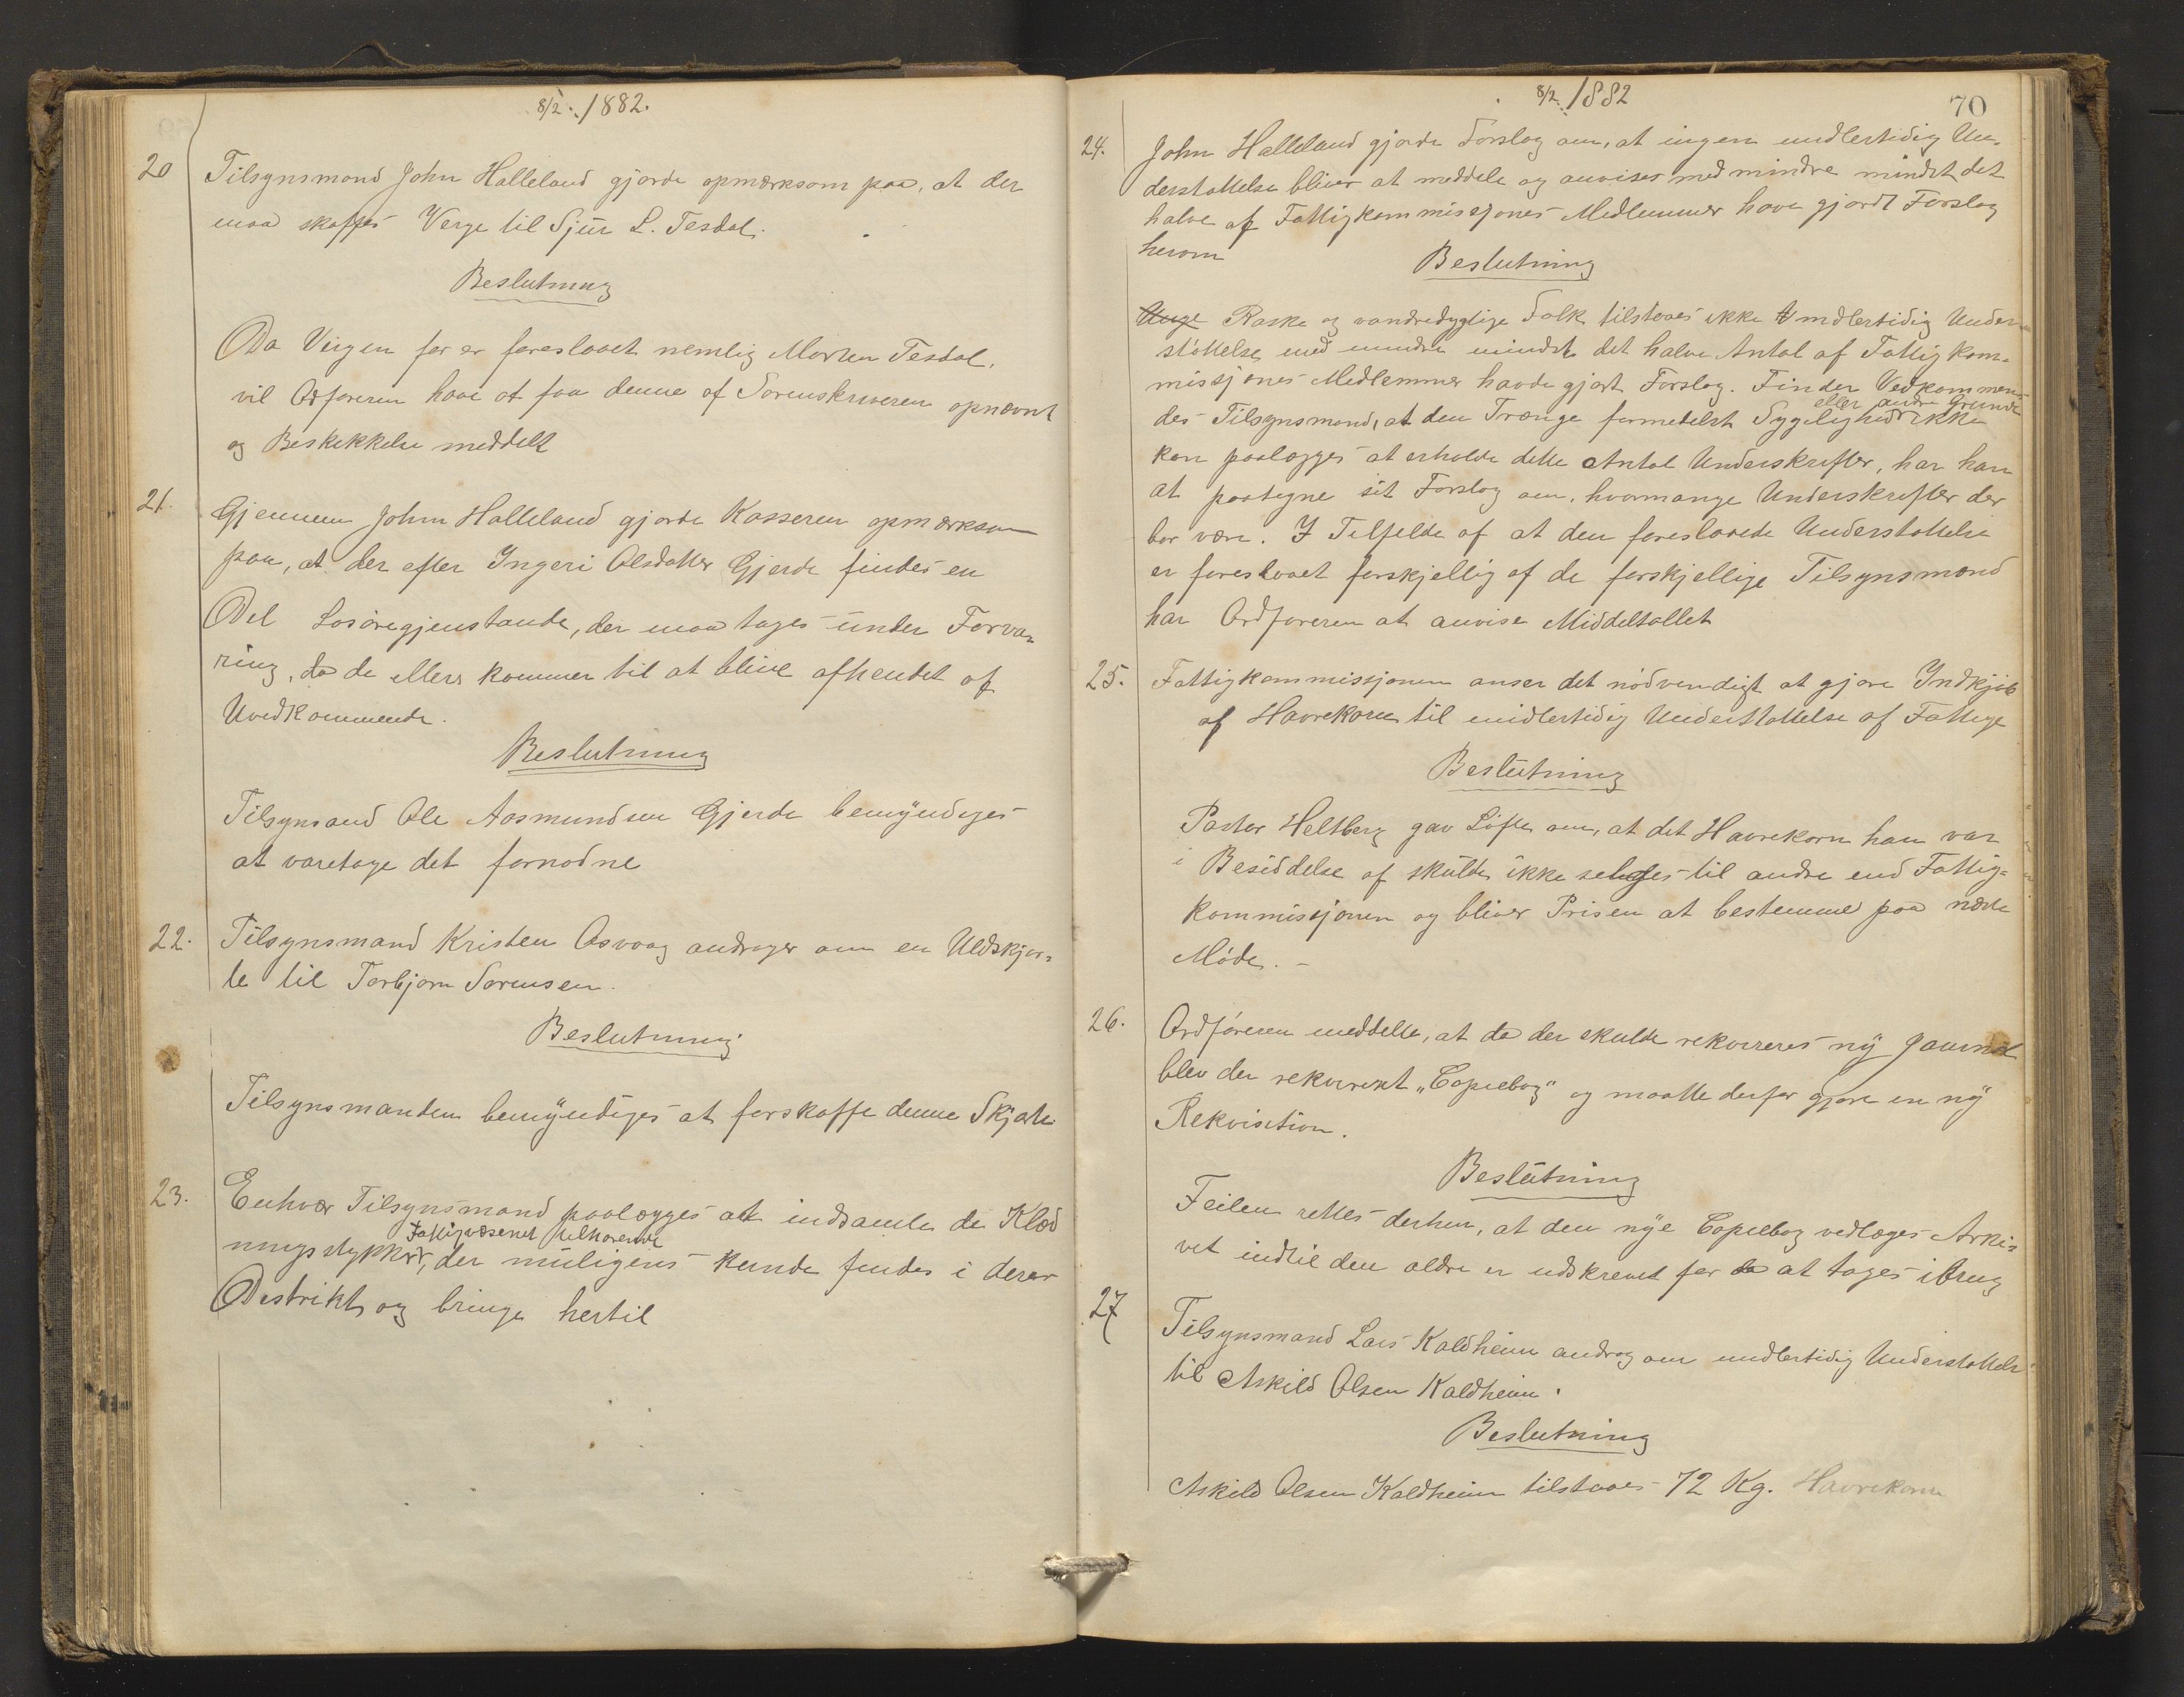 8/2. 1882.
20 Tilsynsmand John Halleland gjorde opmærksom paa, at der
maa skaffes Verge til Sjur L. Tesdal.
Beslutning
Da Vergen før er foreslaaet nemlig Morten Tesdal,
vil Ordføreren have at faa denne af Sorenskriveren opnævnt
og Beskikkelse meddelt
21. Gjennem John Halleland gjorde Kasseren opmærksom
paa, at der efter Ingeri Olsdatter Gjerde findes en
Del Løsøregjenstande, der maa tages under Forva-
ring, da de ellers kommer til at blive afhendet af
Uvedkommende.
Beslutning
Tilsynsand Ole Aasmundsen Gjerde bemyndiges
at varetage det fornødne
22. Tilsynsmand Kristen Osvaag andrager om en Uldskjor-
te til Torbjørn Sørensen.
Beslutning
Tilsynsmanden bemyndiges at forskaffe denne Skjorte
23. Enhver Tilsynsmand paalægges at indsamle de Klæd
Fattigvæsenet tilhørende
ningsstykker, der muligens kunde findes i deres
Distrikt og bringe hertil
8/2. 1882
70
24. John Halleland gjorde Forslag om, at ingen midlertidig Un-
derstøttelse bliver at meddele og anvises med mindre mindst det
halve af Fattigkommissjones Medlemmer have gjordt Forslag
herom
Beslutning
Unge Raske og vandredygtige Folk tilstaaes ikke midlertidig Under-
støttelse med mindre mindst det halve Antal af Fattigkom-
missjones Medlemmer havde gjort Forslag. Finder Vedkommen-
eller andre Grunde
des Tilsynsmand, at den Trænge formedelst Sygelighed ikke
kan paalægges at erholde dette Antal Underskrifter, har han
at paategne sit Forslag om, hvormange Underskrifter der
bør være. I Tilfelde af at den foreslaaede Understøttelse
er foreslaaet forskjellig af de forskjellige Tilsynsmænd
har Ordføreren at anvise Middeltallet
25. Fattigkommissjonen anser det nödvendigt at gjøre Indkjøb
af Havrekorn til midlertidig Understøttelse af Fattige
Beslutning
Pastor Heltberg gav Löfte om, at det Havrekorn han var
i Besiddelse af skulde ikke selges til andre end Fattig-
kommissjonen og bliver Prisen at bestemme paa næste
Möde. -
26. Ordføreren meddelte, at da der skulde rekvireres ny Journal
blev der rekvirert "Copiebog" og maatte derfor gjøre en ny
Rekvisition.
Beslutning
Feilen rettes derhen, at den nye Copiebog vedlæges Arki-
vet indtil den ældre er udskrevet for at tages ibrug
27 Tilsynsmand Lars Kaldheim androg om midlertidig Understøttelse
til Askild Olsen Kaldheim.
Beslutning
Askild Olsen Kaldheim tilstaaes 72 Kg. Havrekorn